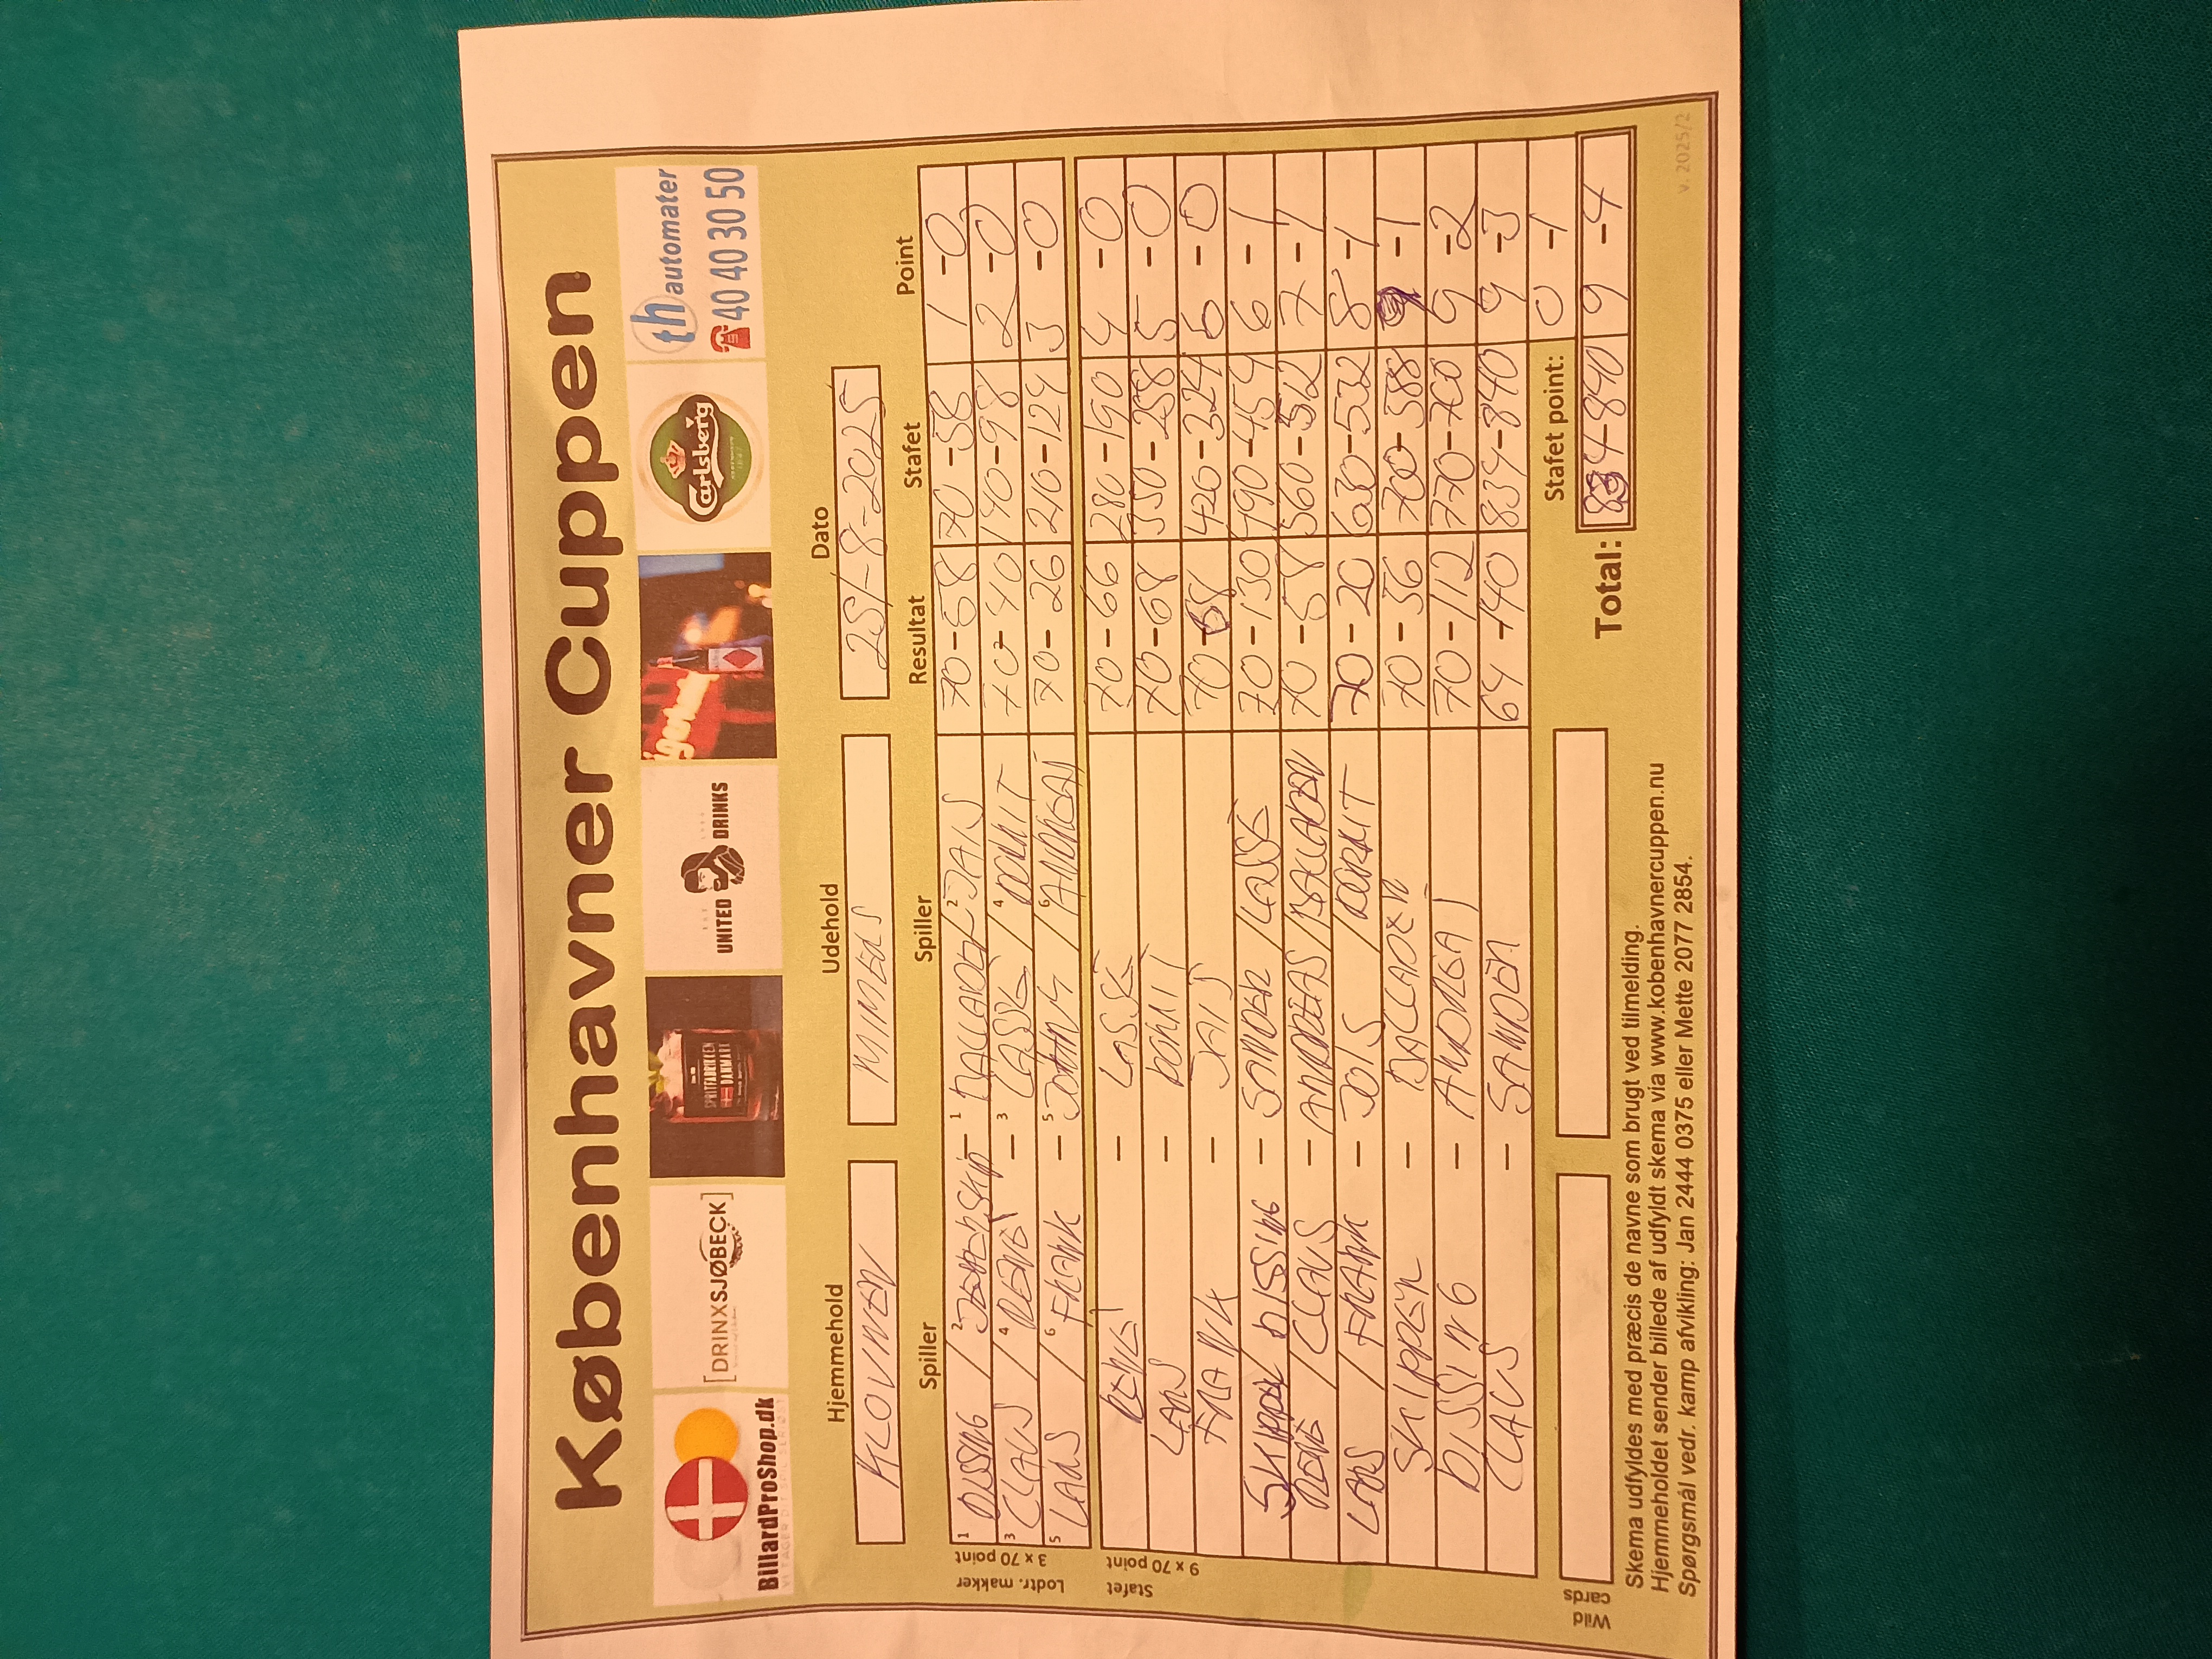 Københavner Cuppen
BillardProShop.dk
[DRINXSJØBECK]
SPRITFABRIKKEN DANMARK
UNITED DRINKS
Carlsberg
th automater
40 40 30 50
Hjemmehold Udehold Dato
KLOVNEN MIMERS 25/-8-2025
Spiller Spiller Resultat Stafet Point
Lodtr. makker 3 x 70 point
1 DISSING / 2 SKIP - 1 BALLADEN 2 JAIS 70-58 70-58 1-0
3 CLAUS / 4 RENE - 3 LASSE / 4 DORRIT 70-40 140-98 2-0
5 LARS / 6 FRANK - 5 JOHNY / 6 ANDREAS 70-26 210-124 3-0
Stafet 9 x 70 point
RENE - LASSE 70-66 280-190 4-0
LARS - DORRIT 70-68 350-258 5-0
FRANK - JAIS 70- 420-324 6-0
SKIPPER DISSING - SANDER / LASSE 70-130 490-454 6-1
RENE / CLAUS - ANDREAS / BALLADEN 70-58 560-512 7-1
LARS / FRANK - JAIS / DORRIT 70-20 630-532 8-1
SKIPPER - BALLADEN 70-36 700-588 9-1
DISSING - ANDREAS 70-112 770-700 9-2
CLAUS - SANDER 64-140 834-840 9-3
Wild cards
Stafet point: 0-1
Total: 834-840 9-4
Skema udfyldes med præcis de navne som brugt ved tilmelding.
Hjemmeholdet sender billede af udfyldt skema via www.kobenhavnercuppen.nu
Spørgsmål vedr. kamp afvikling: Jan 2444 0375 eller Mette 2077 2854.
v. 2025/2